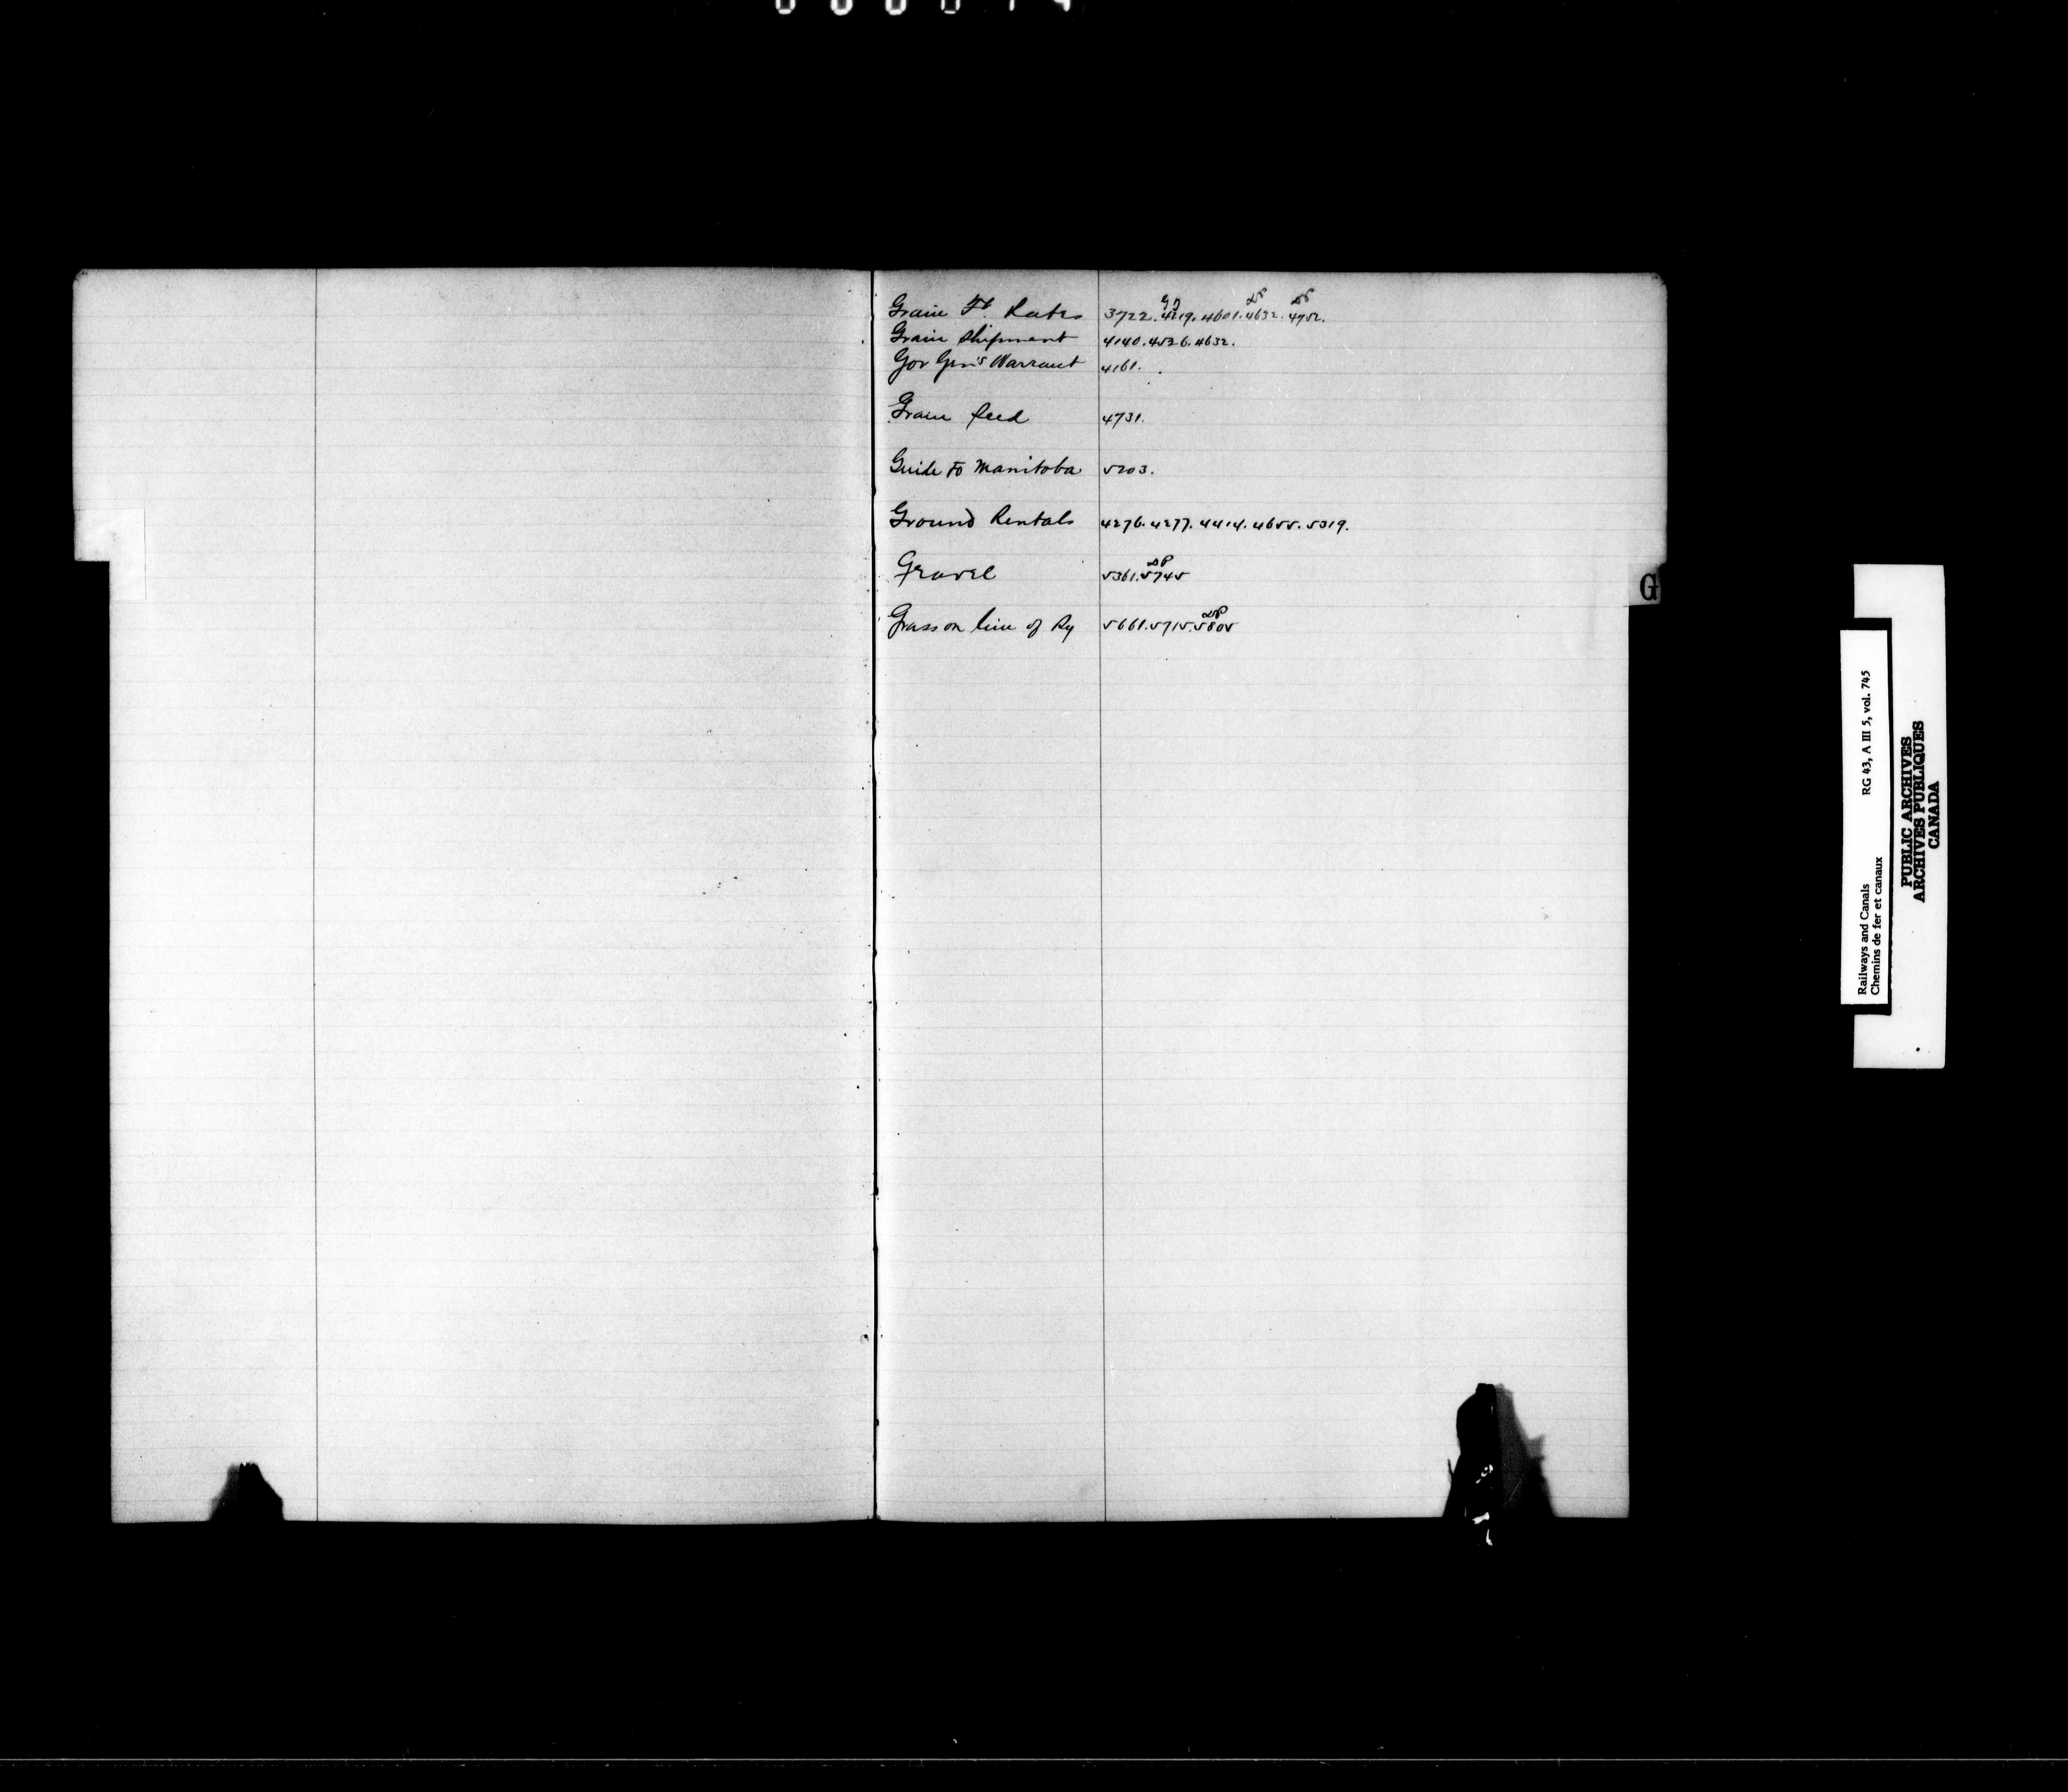 Grain Ft. Rates 3722. 4219. 4601. 4632. 4752.
Grain Shipment 4140. 4526. 4632.
Gov Gen's Warrant 4161.
Grain feed 4731.
Guide to Manitoba 5203.
Ground Rentals 4276. 4277. 4414. 4655. 5319.
Gravel 5361. 5745
Grass on line of Ry 5661. 5715. 5805
G
Railways and Canals RG 43, A III 5, vol. 745
Chemins de fer et canaux
PUBLIC ARCHIVES
ARCHIVES PUBLIQUES
CANADA